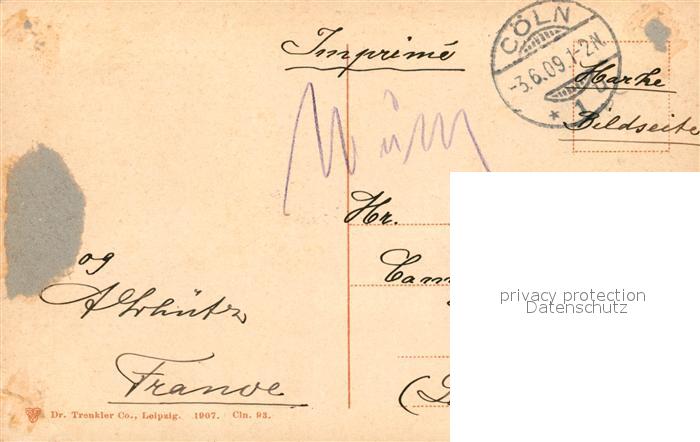 Imprimé
CÖLN
-3.6.09.1-2N.
* 1
Marke
Bildseite
Hr.
og
A Schütz
France
privacy protection
Datenschutz
Dr. Trenkler Co., Leipzig. 1907. Cln. 93.